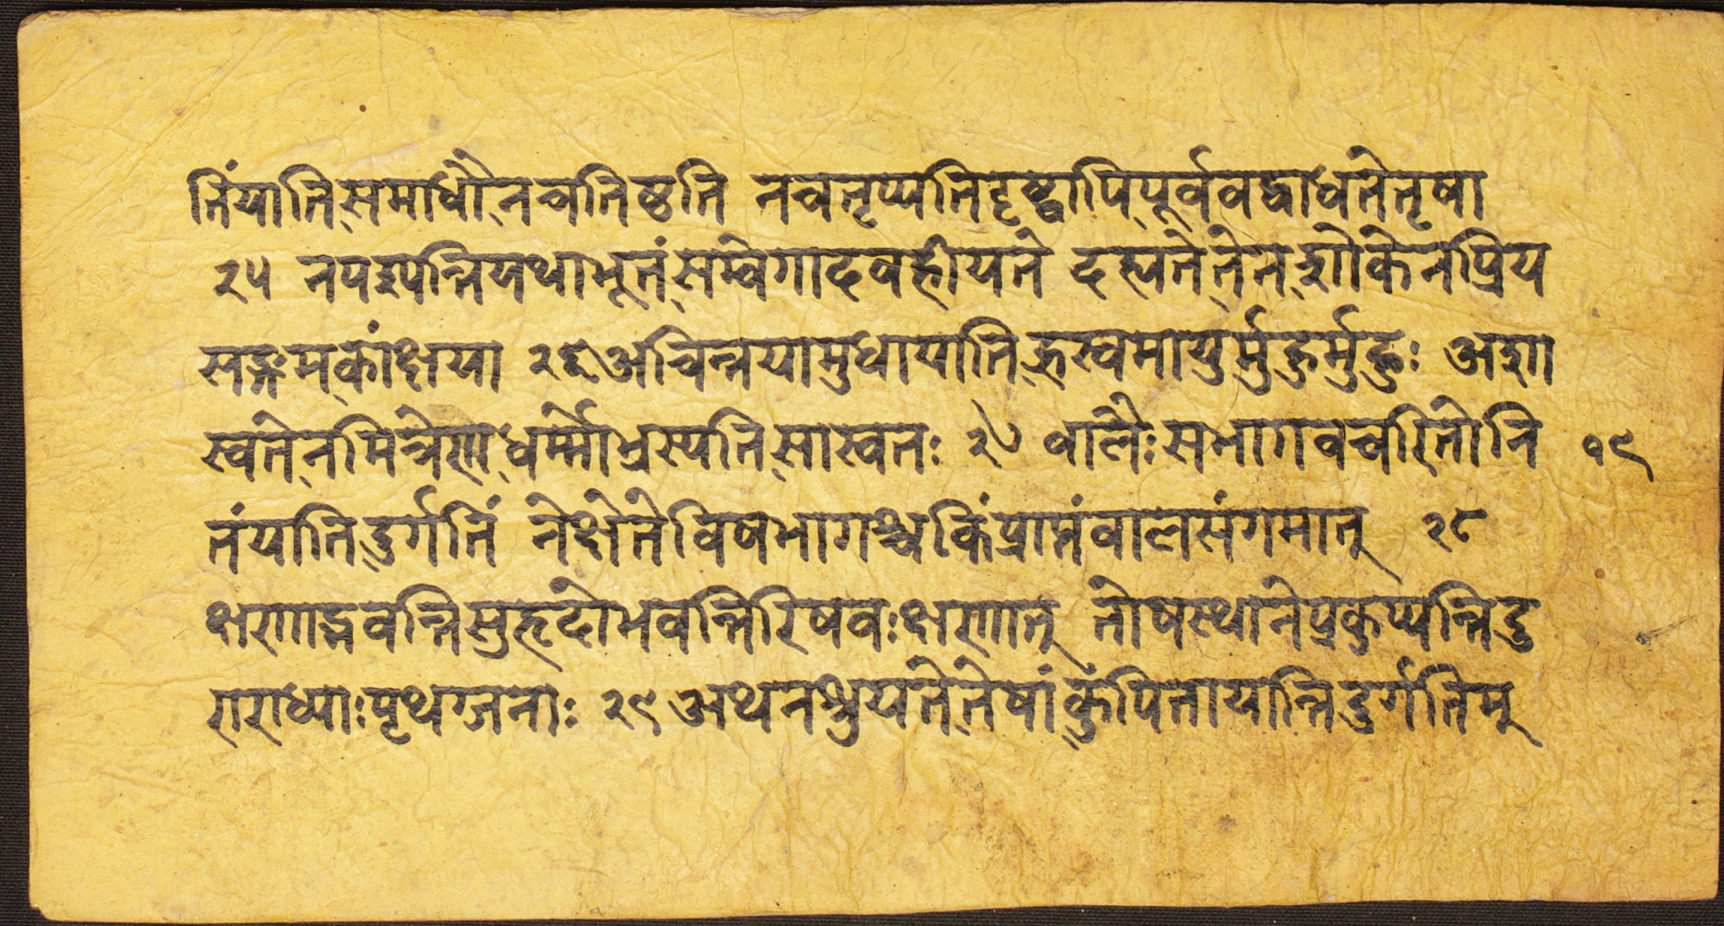 तिंयातिसमाधौनचतिष्ठति नचतृप्यतिदृष्ट्वापिपूर्ववद्वाधतेतृषा
२५ नपश्यन्तियथाभूतंसम्वेगादवहीयते दह्यतेतेनशोकेनप्रिय
सङ्गमकांक्षया २६अचिन्तयामुधायातिह्रस्वमायुर्मुहुर्मुहुः अशा
स्वतेनमित्रेणधर्म्मोभ्रस्यतिसास्वतः २७ बालैःसभागवच्चरितोनि १९
तंयातिदुर्गतिं नेक्षेतेविषभागश्चकिंप्राप्तंवालसंगमात् २८
क्षणाद्भवन्तिसुहृदोभवन्तिरिषवःक्षणात् तोषस्थानेप्रकुप्यन्तिदु
राराध्याःपृथग्जनाः २९ अथनश्रुयतेतेषांकुंपितायान्तिदुर्गतिम्